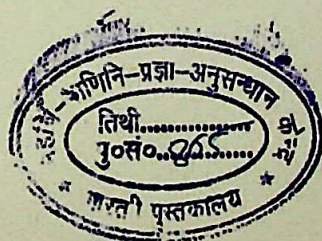 पाणिनि-प्रज्ञा-अनुसन्धान
तिथी....................
पु०सं०....................
भारती पुस्तकालय